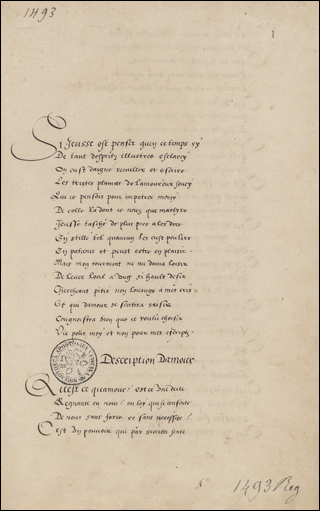 1493
1
Si J'eusse osé penser qu'en ce temps cy
De tant d'espritz illustres esclarcy
On eust daigné recueillir et
Les tristes plainctes de l'amoureux soucy
Que ie pensois pour impetrer mercy
De celle la dont ie n'euz que martyre
J'eusse tasché de plus pres à les dire
En stille tel que chacun les eust peu lire
En patience et peust estre en plaisir
Mais mon tourment ne me donna loisir
De lever l'oeil a ung si hault desir
Cherchant pitié non louange à mes cris
Et qui d'amour se sentira saisir
Congnoistra bien que ie voulu choisir
Vie pour moy et non pour mes escriptz
Description D'amour
Qu'est ce qu'amour? est ce une
Regnante en nous? ou loy qui
De nous sans force et sans necessité?
C'est un pouvoir qui par secrete sente
1493 Reg